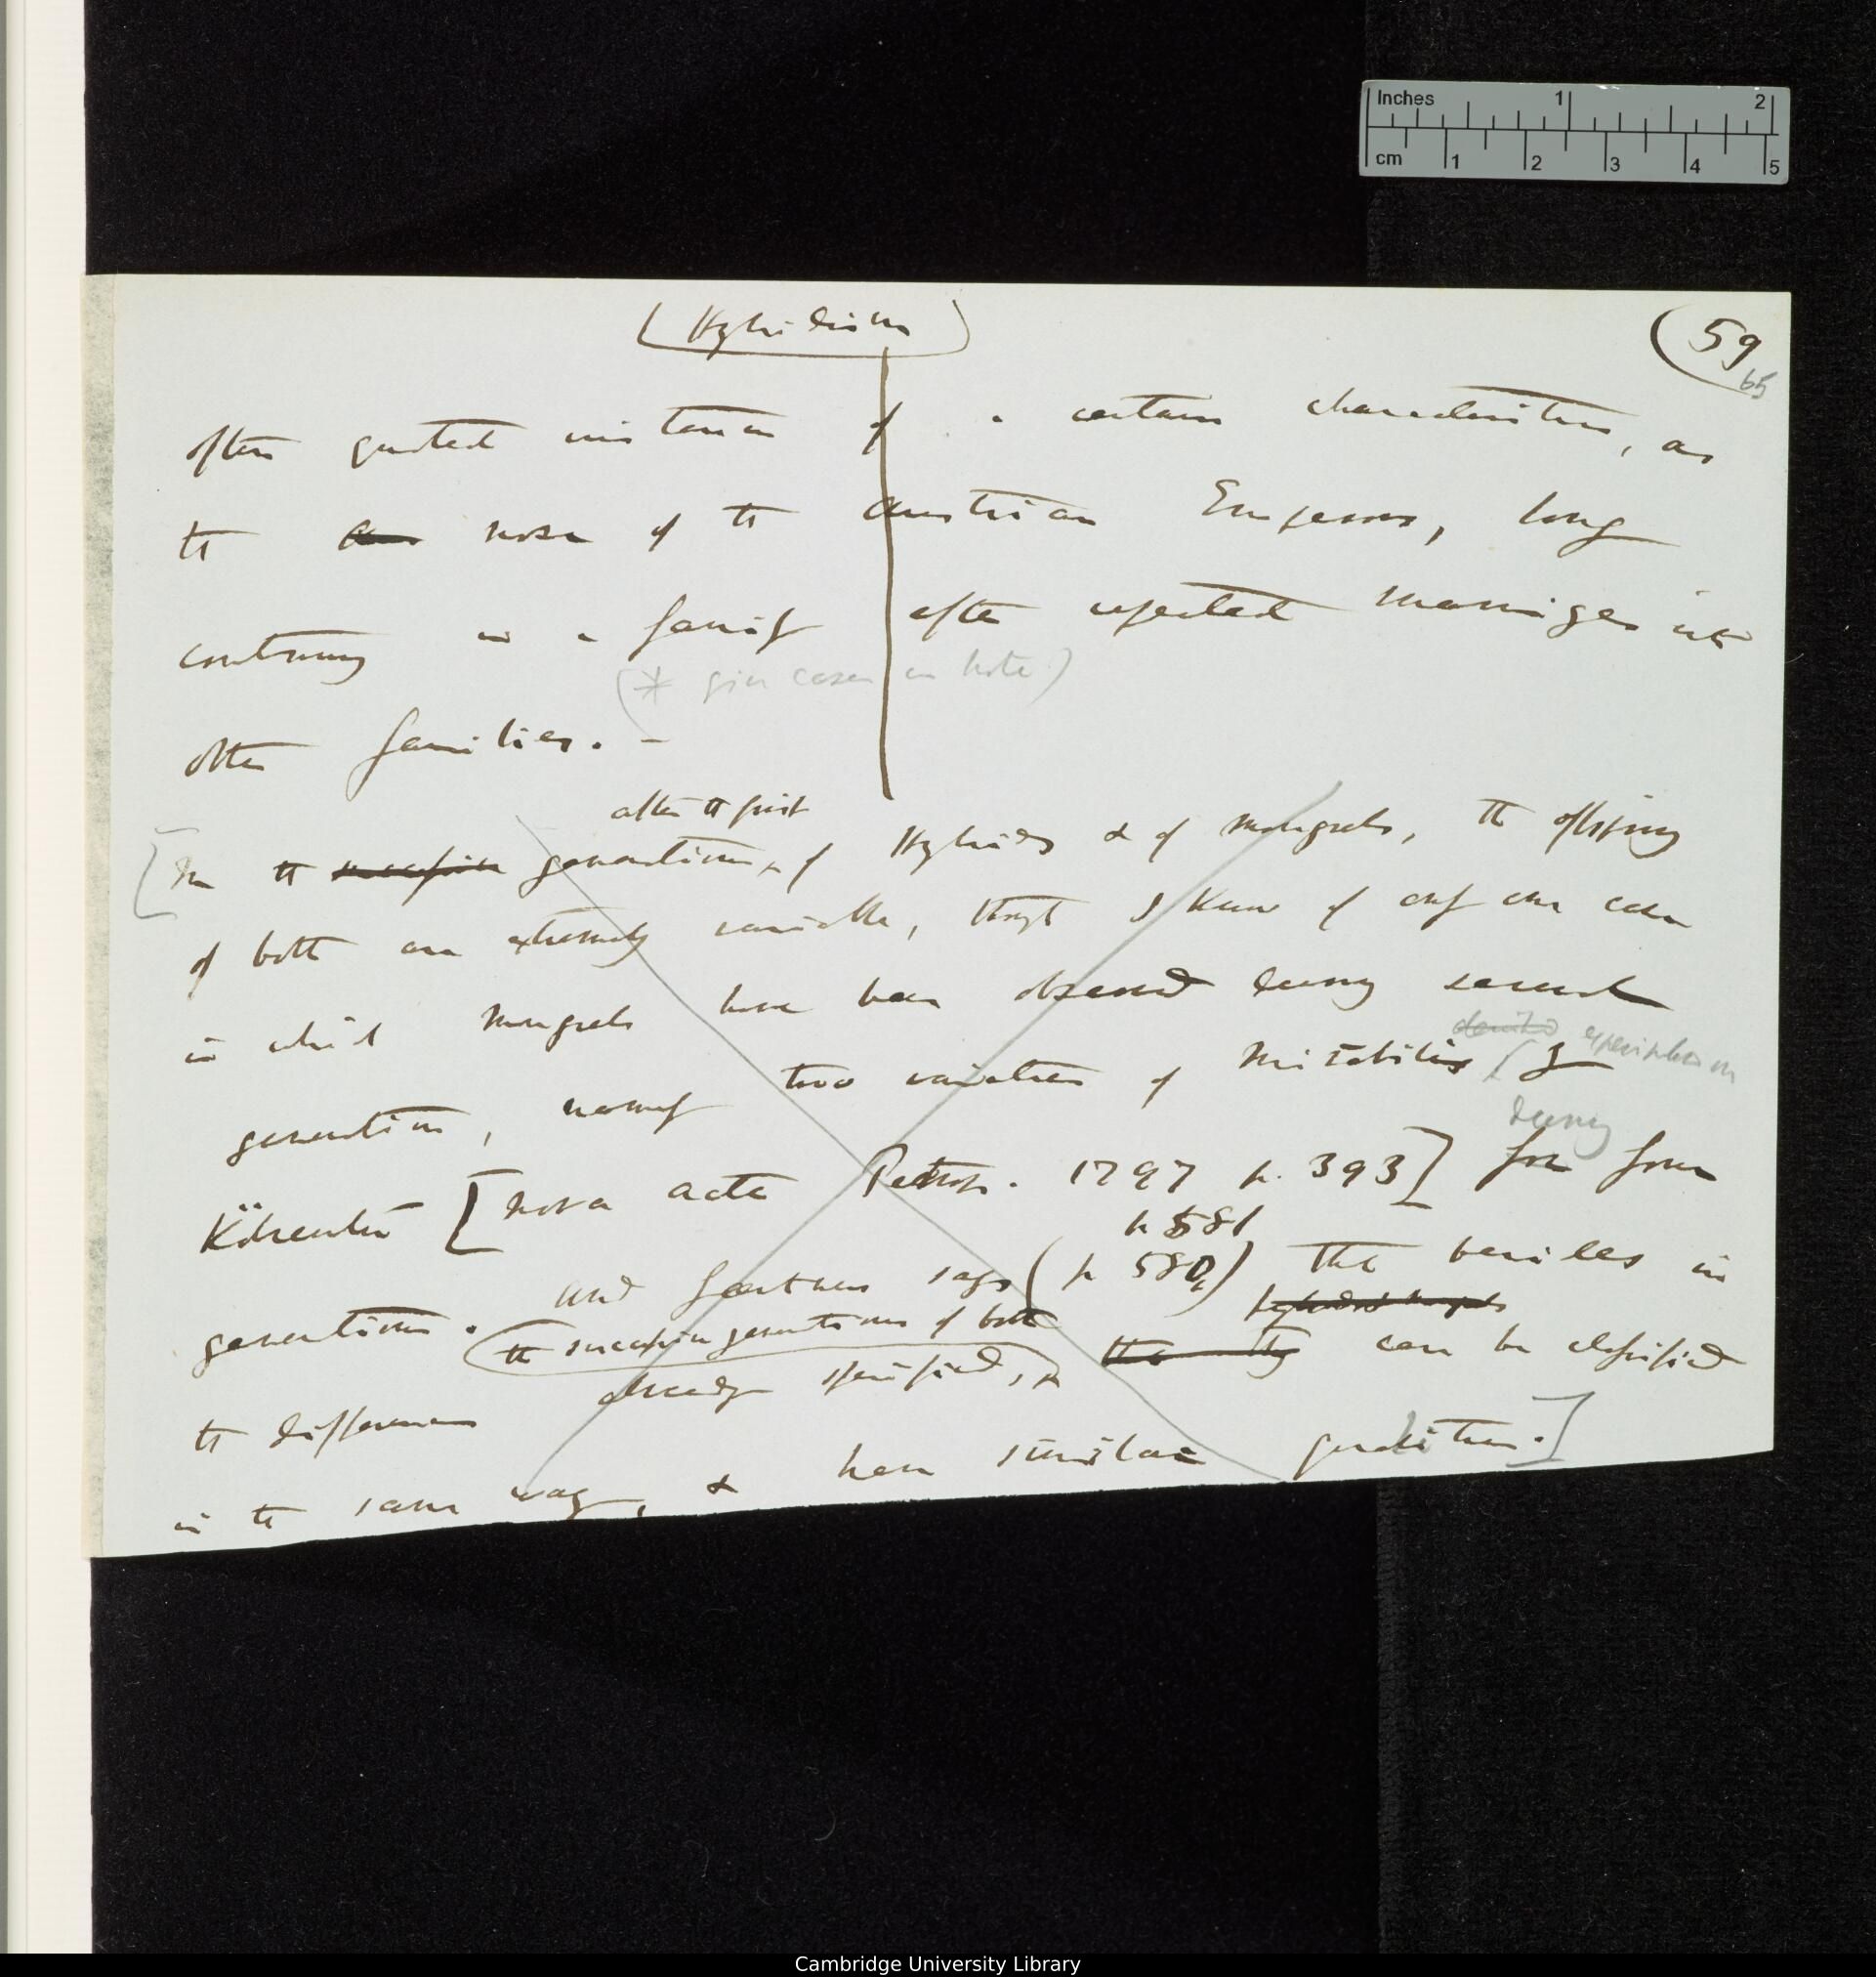 Inches 1 2
cm 1 2 3 4 5
(Hybridism)
(59
65
often quoted instances of a certain characteristic, as
the nose of the Austrian Emperors, long
continuing in a family after repeated marriages with
(* give cases in note)
other families. —
after the first
[In the successive generations, of Hybrids & of mongrels, the offspring
of both are extremely variable, though I know of only one case
in which mongrels have been observed during several
experimented on
generations, namely two varieties of Mirabilis by
during
Kölreuter [Nova Acta Petrop. 1797 p. 393] for four
p 581
generations. and Gärtner says (p 580) that besides in
the successive generations of both
hybrids & mongrels
the difference already specified, they can be classified
in the same way, & have similar qualities.]
Cambridge University Library